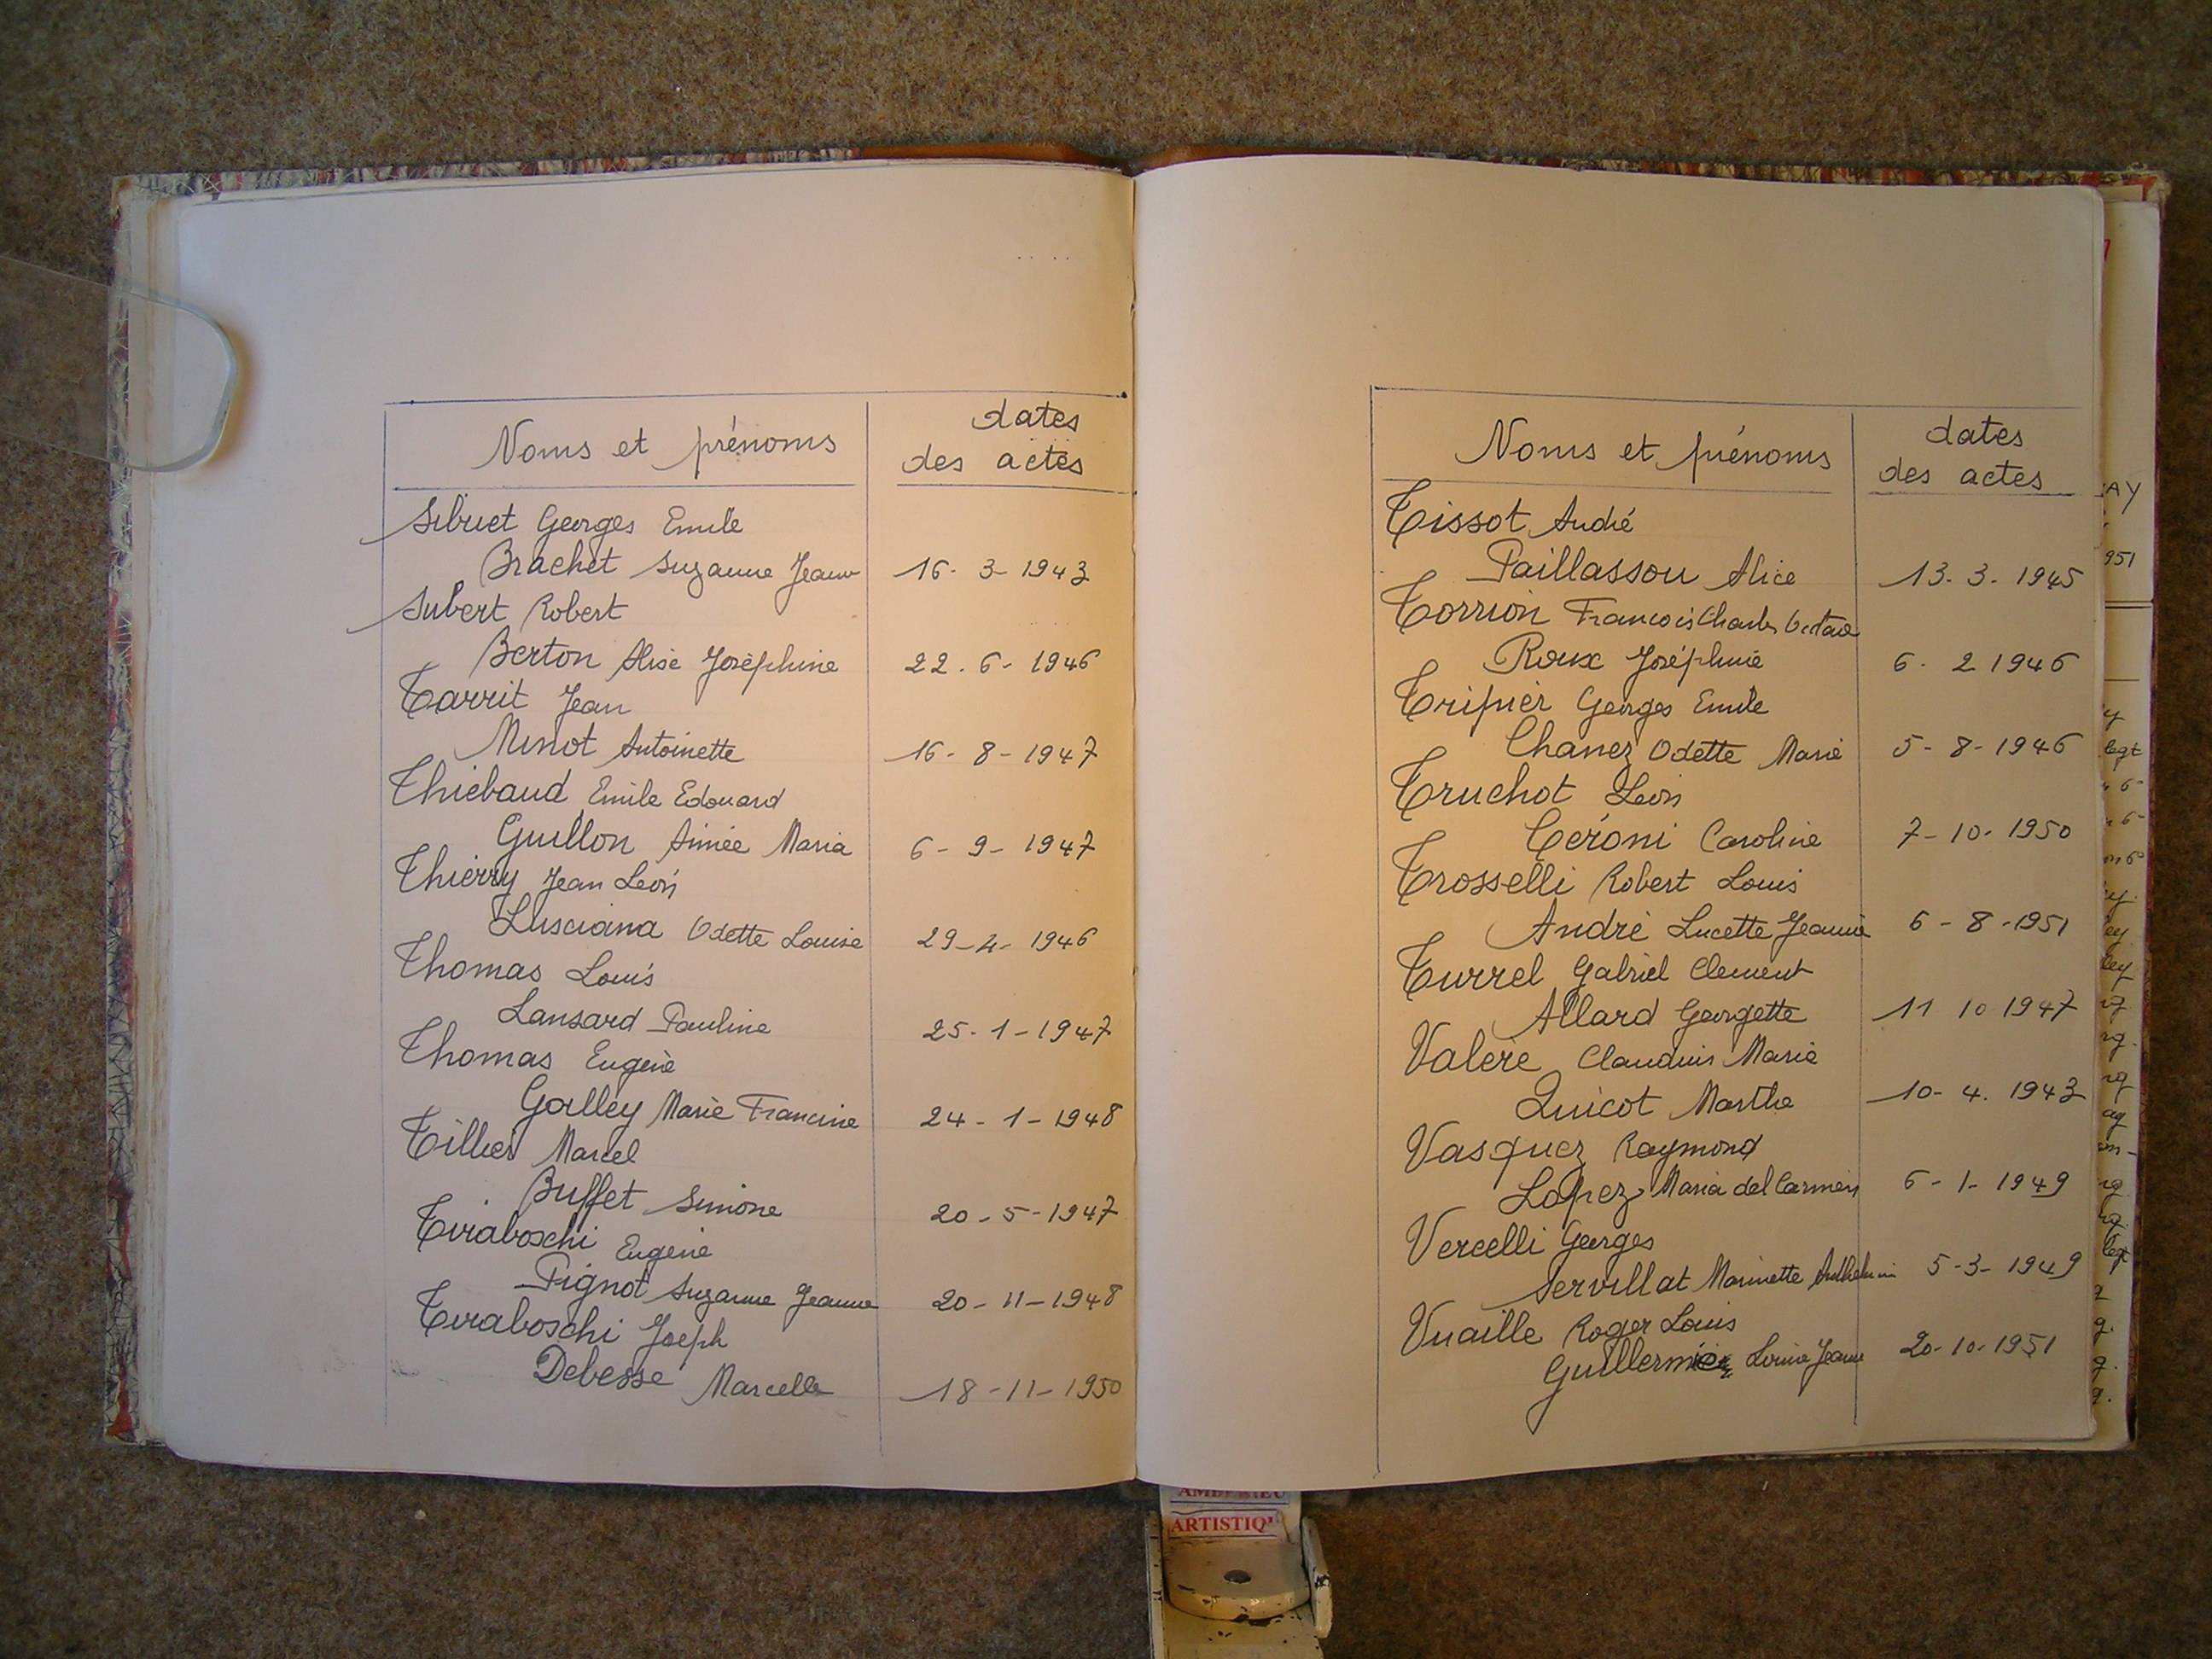 Noms et prénoms
dates
des actes
Sibuet Georges Emile
Brachet Suzanne Jeanne 16-3-1943
Subert Robert
Berton Alise Joséphine 22.6-1946
Tarrit Jean
Minot Antoinette 16-8-1947
Thiebaud Emile Edouard
Guillon Aimée Maria 6-9-1947
Thierry Jean Léon
Lusciana Odette Louise 29-4-1946
Thomas Louis
Lansard Pauline 25-1-1947
Thomas Eugène
Galley Marie Francine 24-1-1948
Tillier Marcel
Buffet Simone 20-5-1947
Tiraboschi Eugène
Pignot Suzanne Jeanne 20-11-1948
Tiraboschi Joseph
Debesse Marcelle 18-11-1950
Noms et prénoms
dates
des actes
Tissot André
Paillasson Alice 13.3.1945
Torrion François Charles Octave
Roux Joséphine 6-2 1946
Tripier Georges Emile
Chanez Odette Marie 5-8-1946
Truchot Léon
Céroni Caroline 7-10-1950
Trosselli Robert Louis
André Lucette Jeanne 6-8-1951
Turrel Gabriel Clement
Allard Georgette 11 10 1947
Valère Claudius Marie
Quicot Marthe 10-4.1943
Vasquez Raymond
Lopez Maria del Carmen 6-1-1949
Vercelli Georges
Servillat Marinette 5-3-1949
Vuaille Roger Louis
Louise Jeanne 20-10-1951
ARTISTIQ